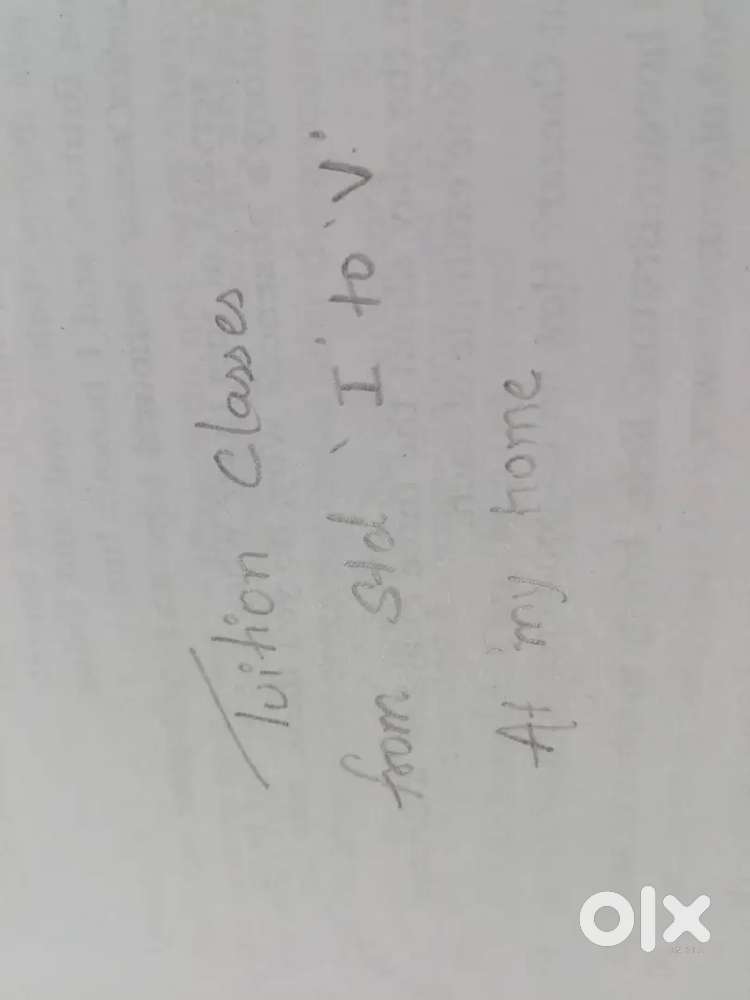 Tuition Classes
from Std 'I' to 'V'.
At my home
olx